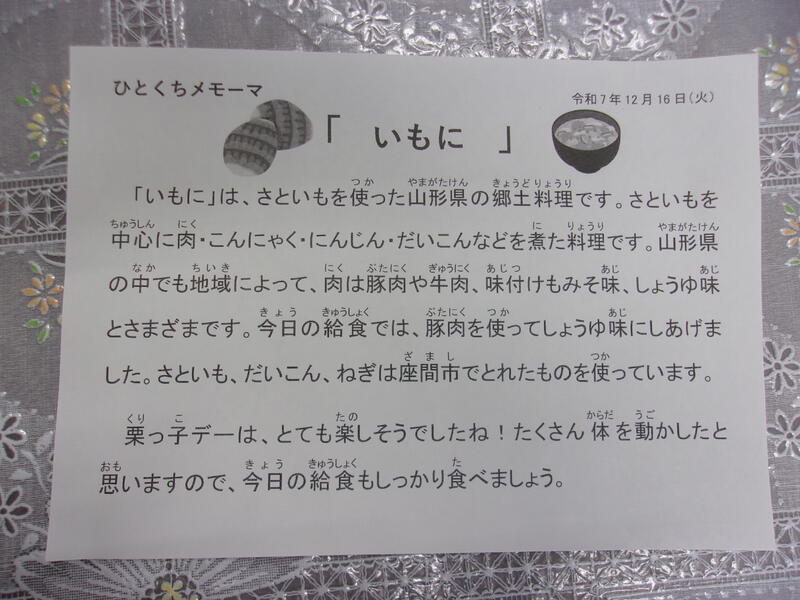 ひとくちメモーマ
令和7年12月16日(火)
「 いもに 」
「いもに」は、さといもを使った山形県の郷土料理です。さといもを
中心に肉・こんにゃく・にんじん・だいこんなどを煮た料理です。山形県
の中でも地域によって、肉は豚肉や牛肉、味付けもみそ味、しょうゆ味
とさまざまです。今日の給食では、豚肉を使ってしょうゆ味にしあげま
した。さといも、だいこん、ねぎは座間市でとれたものを使っています。
栗っ子デーは、とても楽しそうでしたね！たくさん体を動かしたと
思いますので、今日の給食もしっかり食べましょう。